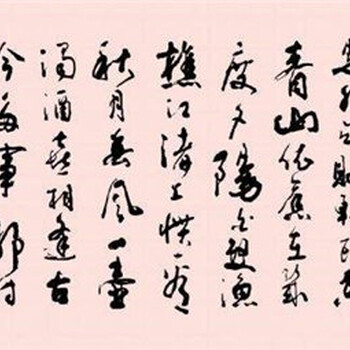 是非成敗轉頭空
青山依舊在幾
度夕陽紅白髮漁
樵江渚上慣看
秋月春風一壺
濁酒喜相逢古
今多少事都付